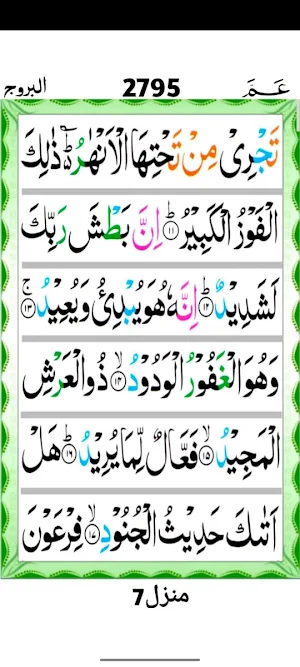 البروج 2795 عَـمَّ
تَجْرِىْ مِنْ تَحْتِهَا الْاَنْهٰرُ ؕ ذٰلِكَ
الْفَوْزُ الْكَبِيْرُ ؕ‏﴿۱۱﴾ اِنَّ بَطْشَ رَبِّكَ
لَشَدِيْدٌ ؕ‏﴿۱۲﴾ اِنَّهٗ هُوَ يُبْدِئُ وَ يُعِيْدُ ۚ‏﴿۱۳﴾
وَهُوَ الْغَفُوْرُ الْوَدُوْدُ ۙ‏﴿۱۴﴾ ذُو الْعَرْشِ
الْمَجِيْدُ ۙ‏﴿۱۵﴾ فَعَّالٌ لِّمَا يُرِيْدُ ؕ‏﴿۱۶﴾ هَلْ
اَتٰٮكَ حَدِيْثُ الْجُنُوْدِ ۙ‏﴿۱۷﴾ فِرْعَوْنَ
منزل7